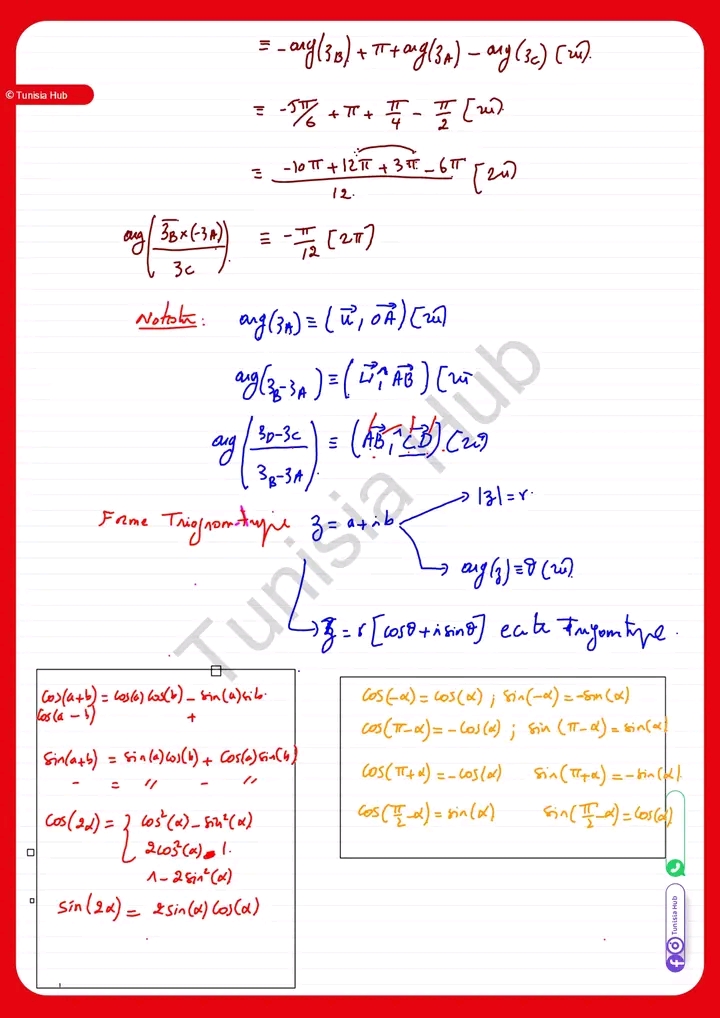 ≡ -arg(zB) + π + arg(zA) - arg(zC) [2π].
© Tunisia Hub
≡ -5π/6 + π + π/4 - π/2 [2π]
≡ (-10π + 12π + 3π - 6π)/12 [2π]
arg( (z̄B × (-zA))/zC ) ≡ -π/12 [2π]
arg(zA) ≡ (u⃗, OA⃗) [2π]
arg(zB - zA) ≡ (u⃗ ^, AB⃗) [2π
arg( (zD - zC)/(zB - zA) ) ≡ (AB⃗ ^, CD⃗) [2π]
|z| = r.
Forme z = a + ib
arg(z) ≡ θ [2π].
z = r [cosθ + i sinθ]
Tunisia Hub
cos(a+b) = cos(a) cos(b) - sin(a) sin b.
cos(a - b) +
sin(a+b) = sin(a) cos(b) + cos(a) sin(b)
- = " - "
cos(2α) = { cos²(α) - sin²(α)
2cos²(α) - 1.
1 - 2 sin²(α)
sin(2α) = 2 sin(α) cos(α)
cos(-α) = cos(α) ; sin(-α) = -sin(α)
cos(π-α) = -cos(α) ; sin(π-α) = sin(α)
cos(π+α) = -cos(α) sin(π+α) = -sin(α).
cos(π/2 - α) = sin(α) sin(π/2 - α) = cos(α)
Tunisia Hub